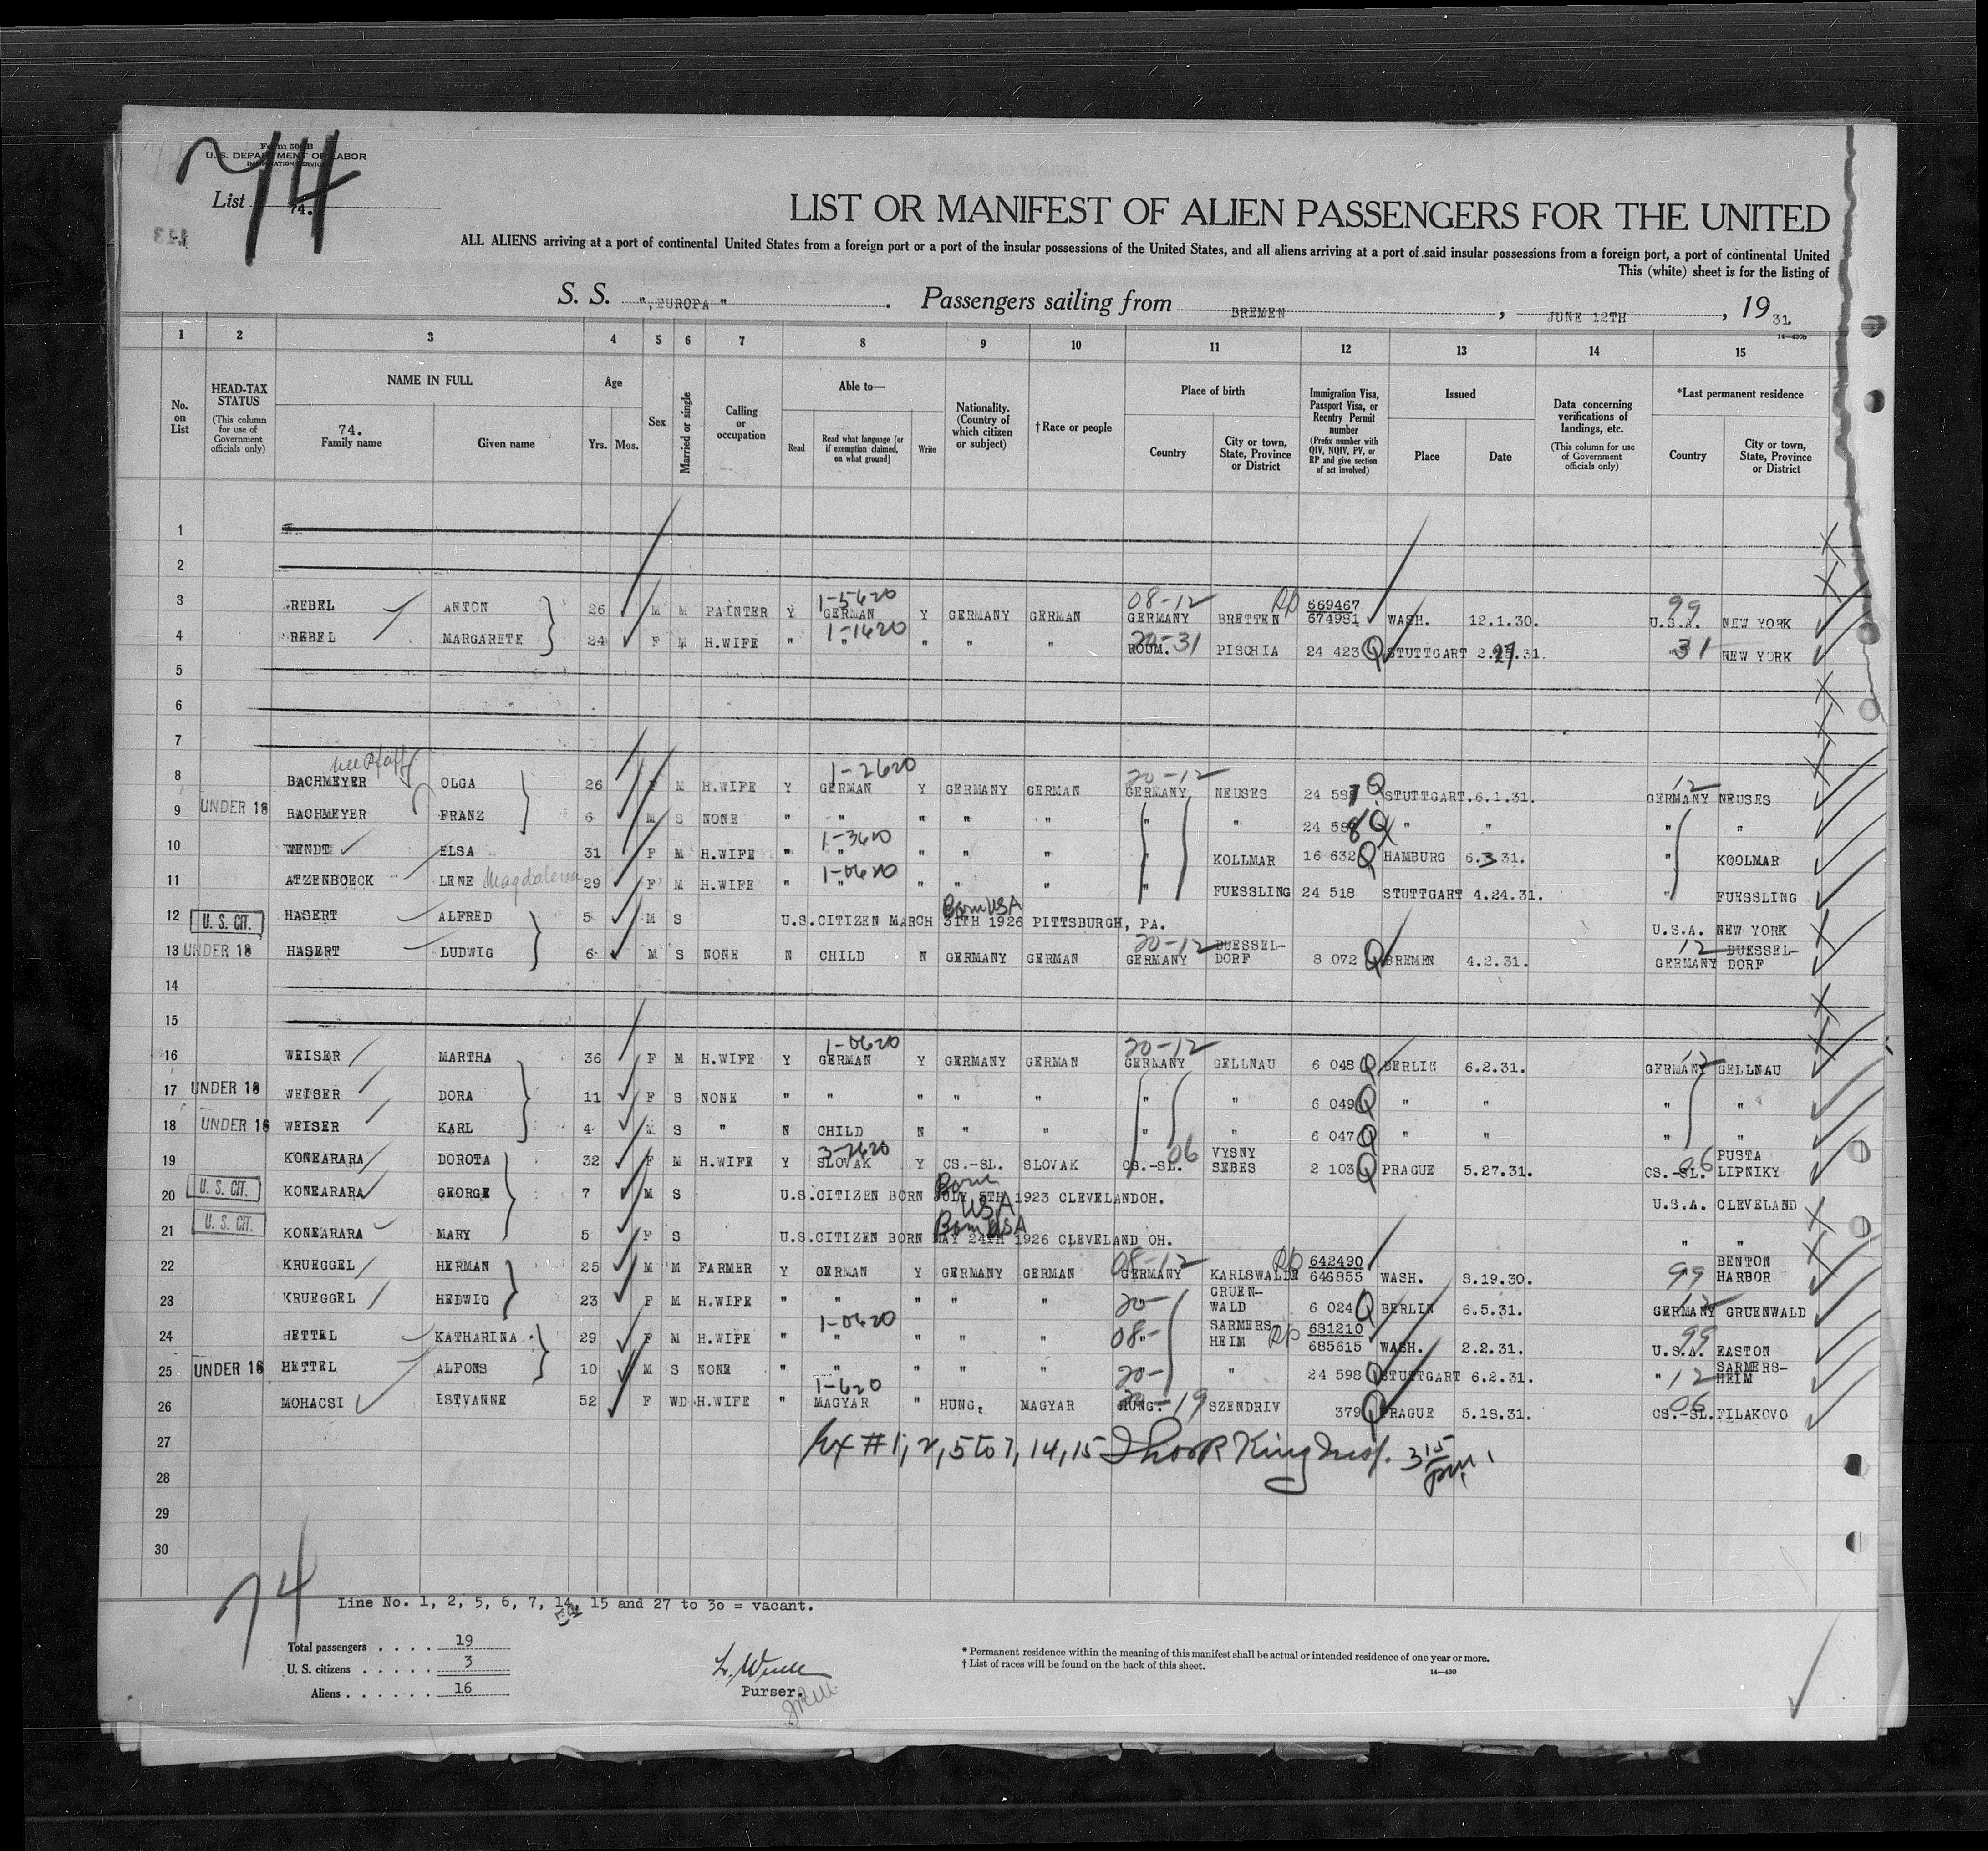 74
Form 500B
U. S. DEPARTMENT OF LABOR
IMMIGRATION SERVICE
List 74.
LIST OR MANIFEST OF ALIEN PASSENGERS FOR THE UNITED
ALL ALIENS arriving at a port of continental United States from a foreign port or a port of the insular possessions of the United States, and all aliens arriving at a port of said insular possessions from a foreign port, a port of continental United
This (white) sheet is for the listing of
S. S. ",EUROPA " . Passengers sailing from BREMEN , JUNE 12TH , 19 31.
14—430b
1 2 3 4 5 6 7 8 9 10 11 12 13 14 15
No. on List
HEAD-TAX STATUS (This column for use of Government officials only)
NAME IN FULL
74.
Family name Given name
Age Yrs. Mos.
Sex
Married or single
Calling or occupation
Able to— Read Read what language [or if exemption claimed, on what ground] Write
Nationality. (Country of which citizen or subject)
†Race or people
Place of birth Country City or town, State, Province or District
Immigration Visa, Passport Visa, or Reentry Permit number (Prefix number with QIV, NQIV, PV, or RP and give section of act involved)
Issued Place Date
Data concerning verifications of landings, etc. (This column for use of Government officials only)
*Last permanent residence Country City or town, State, Province or District
1
2
3 REBEL ANTON 26 M M PAINTER Y 1-5620 GERMAN Y GERMANY GERMAN 08-12 GERMANY BRETTEN Rp 669467 674981 WASH. 12.1.30. 99 U.S.A. NEW YORK
4 REBEL MARGARETE 24 F M H.WIFE " 1-1620 " " " " ROUM. 31 PISCHIA 24 423 Q STUTTGART 2. .31. " 31 NEW YORK
5
6
7
8 nee Pfaff BACHMEYER OLGA 26 F M H.WIFE Y 1-2620 GERMAN Y GERMANY GERMAN 20-12 GERMANY NEUSES 24 587 Q STUTTGART.6.1.31. 12 GERMANY NEUSES
9 UNDER 16 BACHMEYER FRANZ 6 M S NONE " " " " " " " 24 598 Q " " " "
10 WENDT ELSA 31 F M H.WIFE " 1-3620 " " " " " KOLLMAR 16 632 Q HAMBURG 6.3.31. " KOOLMAR
11 ATZENBOECK LENE Magdalena 29 F M H.WIFE " 1-0620 " " " " " FUESSLING 24 518 STUTTGART 4.24.31. " FUESSLING
12 U. S. CIT. HASERT ALFRED 5 M S U.S.CITIZEN MARCH 31TH 1926 PITTSBURGH, PA. Born USA U.S.A. NEW YORK
13 UNDER 16 HASERT LUDWIG 6 M S NONE N CHILD N GERMANY GERMAN 20-12 GERMANY DUESSEL-DORF 8 072 Q BREMEN 4.2.31. 12 GERMANY DUESSEL-DORF
14
15
16 WEISER MARTHA 36 F M H.WIFE Y 1-0620 GERMAN Y GERMANY GERMAN 20-12 GERMANY GELLNAU 6 048 Q BERLIN 6.2.31. 12 GERMANY GELLNAU
17 UNDER 16 WEISER DORA 11 F S NONE " " " " " " " 6 049 Q " " " "
18 UNDER 16 WEISER KARL 4 M S " N CHILD N " " " " 6 047 Q " " " "
19 KONEARARA DOROTA 32 F M H.WIFE Y 3-2620 SLOVAK Y CS.-SL. SLOVAK CS.-SL. 06 VYSNY SEBES 2 103 Q PRAGUE 5.27.31. 06 CS.-SL. PUSTA LIPNIKY
20 U. S. CIT. KONEARARA GEORGE 7 M S U.S.CITIZEN BORN JULY 5TH 1923 CLEVELANDOH. Born USA U.S.A. CLEVELAND
21 U. S. CIT. KONEARARA MARY 5 F S U.S.CITIZEN BORN MAY 24TH 1926 CLEVELAND OH. Born USA " "
22 KRUEGGEL HERMAN 25 M M FARMER Y GERMAN Y GERMANY GERMAN 08-12 GERMANY KARLSWALDE Rp 642490 646855 WASH. 8.19.30. 99 " BENTON HARBOR
23 KRUEGGEL HEDWIG 23 F M H.WIFE " " " " " 20- GRUEN-WALD 6 024 Q BERLIN 6.5.31. 12 GERMANY GRUENWALD
24 HETTEL KATHARINA. 29 F M H.WIFE " 1-0620 " " " " 08- " SARMERS-HEIM Rp 681210 685615 WASH. 2.2.31. 99 U.S.A. EASTON
25 UNDER 16 HETTEL ALFONS 10 M S NONE " " " " " 20- " 24 598 Q STUTTGART 6.2.31. " 12 SARMERS-HEIM
26 MOHACSI ISTVANNE 52 F WD H.WIFE " 1-620 MAGYAR " HUNG. MAGYAR HUNG. 19 SZENDRIV 379 Q PRAGUE 5.18.31. 06 CS.-SL. FILAKOVO
27 Ex # 1, 2, 5 to 7, 14, 15 King Insp. 3 15 pm.
28
29
30
74
Line No. 1, 2, 5, 6, 7, 14, 15 and 27 to 30 = vacant.
Total passengers . . . . 19
U. S. citizens . . . . . 3
Aliens . . . . . . 16
Purser.
* Permanent residence within the meaning of this manifest shall be actual or intended residence of one year or more.
† List of races will be found on the back of this sheet.
14—430